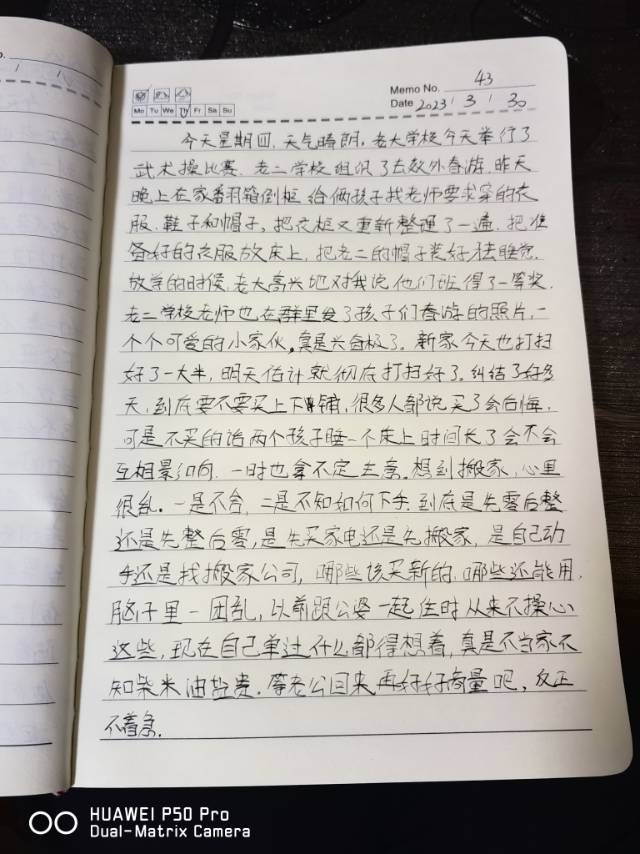 Memo No. 43
Mo Tu We Th Fr Sa Su
Date 2023 / 3 / 30
今天星期四,天气晴朗。老大学校今天举行了
武术操比赛,老二学校组织了去郊外春游,昨天
晚上在家翻箱倒柜给俩孩子找老师要求穿的衣
服、鞋子和帽子,把衣柜又重新整理了一遍,把准
备好的衣服放床上,把老二的帽子装好袪睡觉.
放学的时候,老大高兴地对我说他们班得了一等奖.
老二学校老师也在群里发了孩子们春游的照片,一
个个可爱的小家伙,真是兴奋极了。新家今天也打扫
好了一大半,明天估计就彻底打扫好了。纠结了好多
天,到底要不要买上下铺,很多人都说买了会后悔,
可是不买的话两个孩子睡一个床上时间长了会不会
互相影响,一时也拿不定主意。想到搬家,心里
很乱。一是不舍,二是不知如何下手,到底是先零后整
还是先整后零,是先买家电还是先搬家,是自己动
手还是找搬家公司,哪些该买新的,哪些还能用,
脑子里一团乱,以前跟公婆一起住时从来不操心
这些,现在自己单过什么都得想着,真是不当家不
知柴米油盐贵.等老公回来再好好商量吧,反正
不着急.
HUAWEI P50 Pro
Dual-Matrix Camera